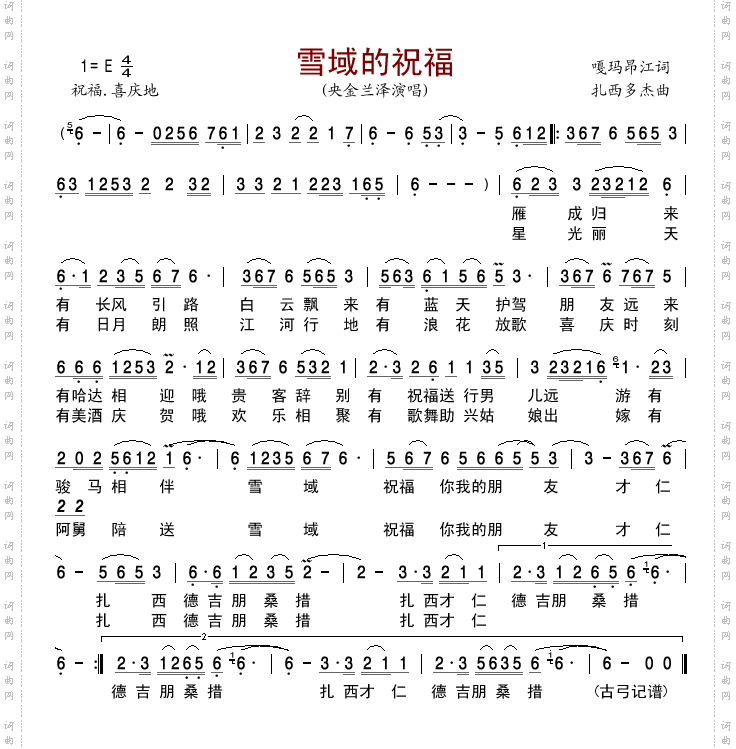 雪域的祝福
1=E 4/4
嘎玛昂江词
祝福.喜庆地
(央金兰泽演唱)
扎西多杰曲
(5 6 - | 6 - 0256 761 | 2 3 2 2 1 7 | 6 - 6 53 | 3 - 5 612 |: 367 6 565 3
63 1253 2 2 32 | 3 3 2 1 223 165 | 6 - - - ) | 6 2 3 3 23212 6 |
雁 成归 来
星 光丽 天
6·1 2 3 5 6 7 6· | 367 6 565 3 | 563 6 1 5 6 5 3· | 367 6 767 5
有 长风 引路 白云飘来有 蓝天护驾 朋友远来
有 日月 朗照 江河行地有 浪花放歌 喜庆时刻
6 6 6 1253 2· 12 | 367 6 532 1 | 2·3 2 6 1 1 35 | 3 23216 6 1· 23
有哈达相 迎哦 贵客辞别有 祝福送行男 儿远 游有
有美酒庆 贺哦 欢乐相聚有 歌舞助兴姑 娘出 嫁有
2 0 2 5612 1 6· | 6 1235 6 7 6· | 5 6 7 6 5 6 6 5 5 3 | 3 - 367 6 |
骏马相伴 雪域 祝福 你我的朋 友 才仁
2 2
阿舅 陪送 雪域 祝福 你我的朋 友 才仁
1
6 - 5 6 5 3 | 6·6 1 2 3 5 2 - | 2 - 3·3 2 1 1 | 2·3 1 2 6 5 6 1 6· |
扎 西 德吉朋桑措 扎西才仁 德吉朋 桑措
扎 西 德吉朋桑措 扎西才仁
2
6 - :| 2·3 1265 6 1 6· | 6 - 3·3 2 1 1 | 2·3 5635 6 1 6· | 6 - 0 0 ||
德吉朋桑措 扎西才仁 德吉朋桑措 (古弓记谱)
词曲网